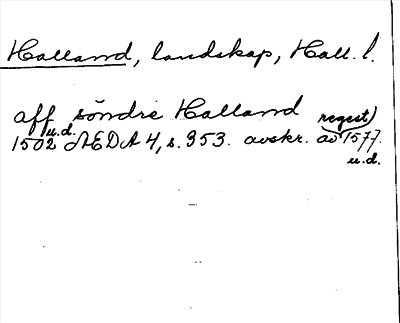 Halland, landskap, Hall. l.
aff söndre Halland regest)
1502 u.d. ÆDA 4, s. 353. avskr. av 1577.
u.d.